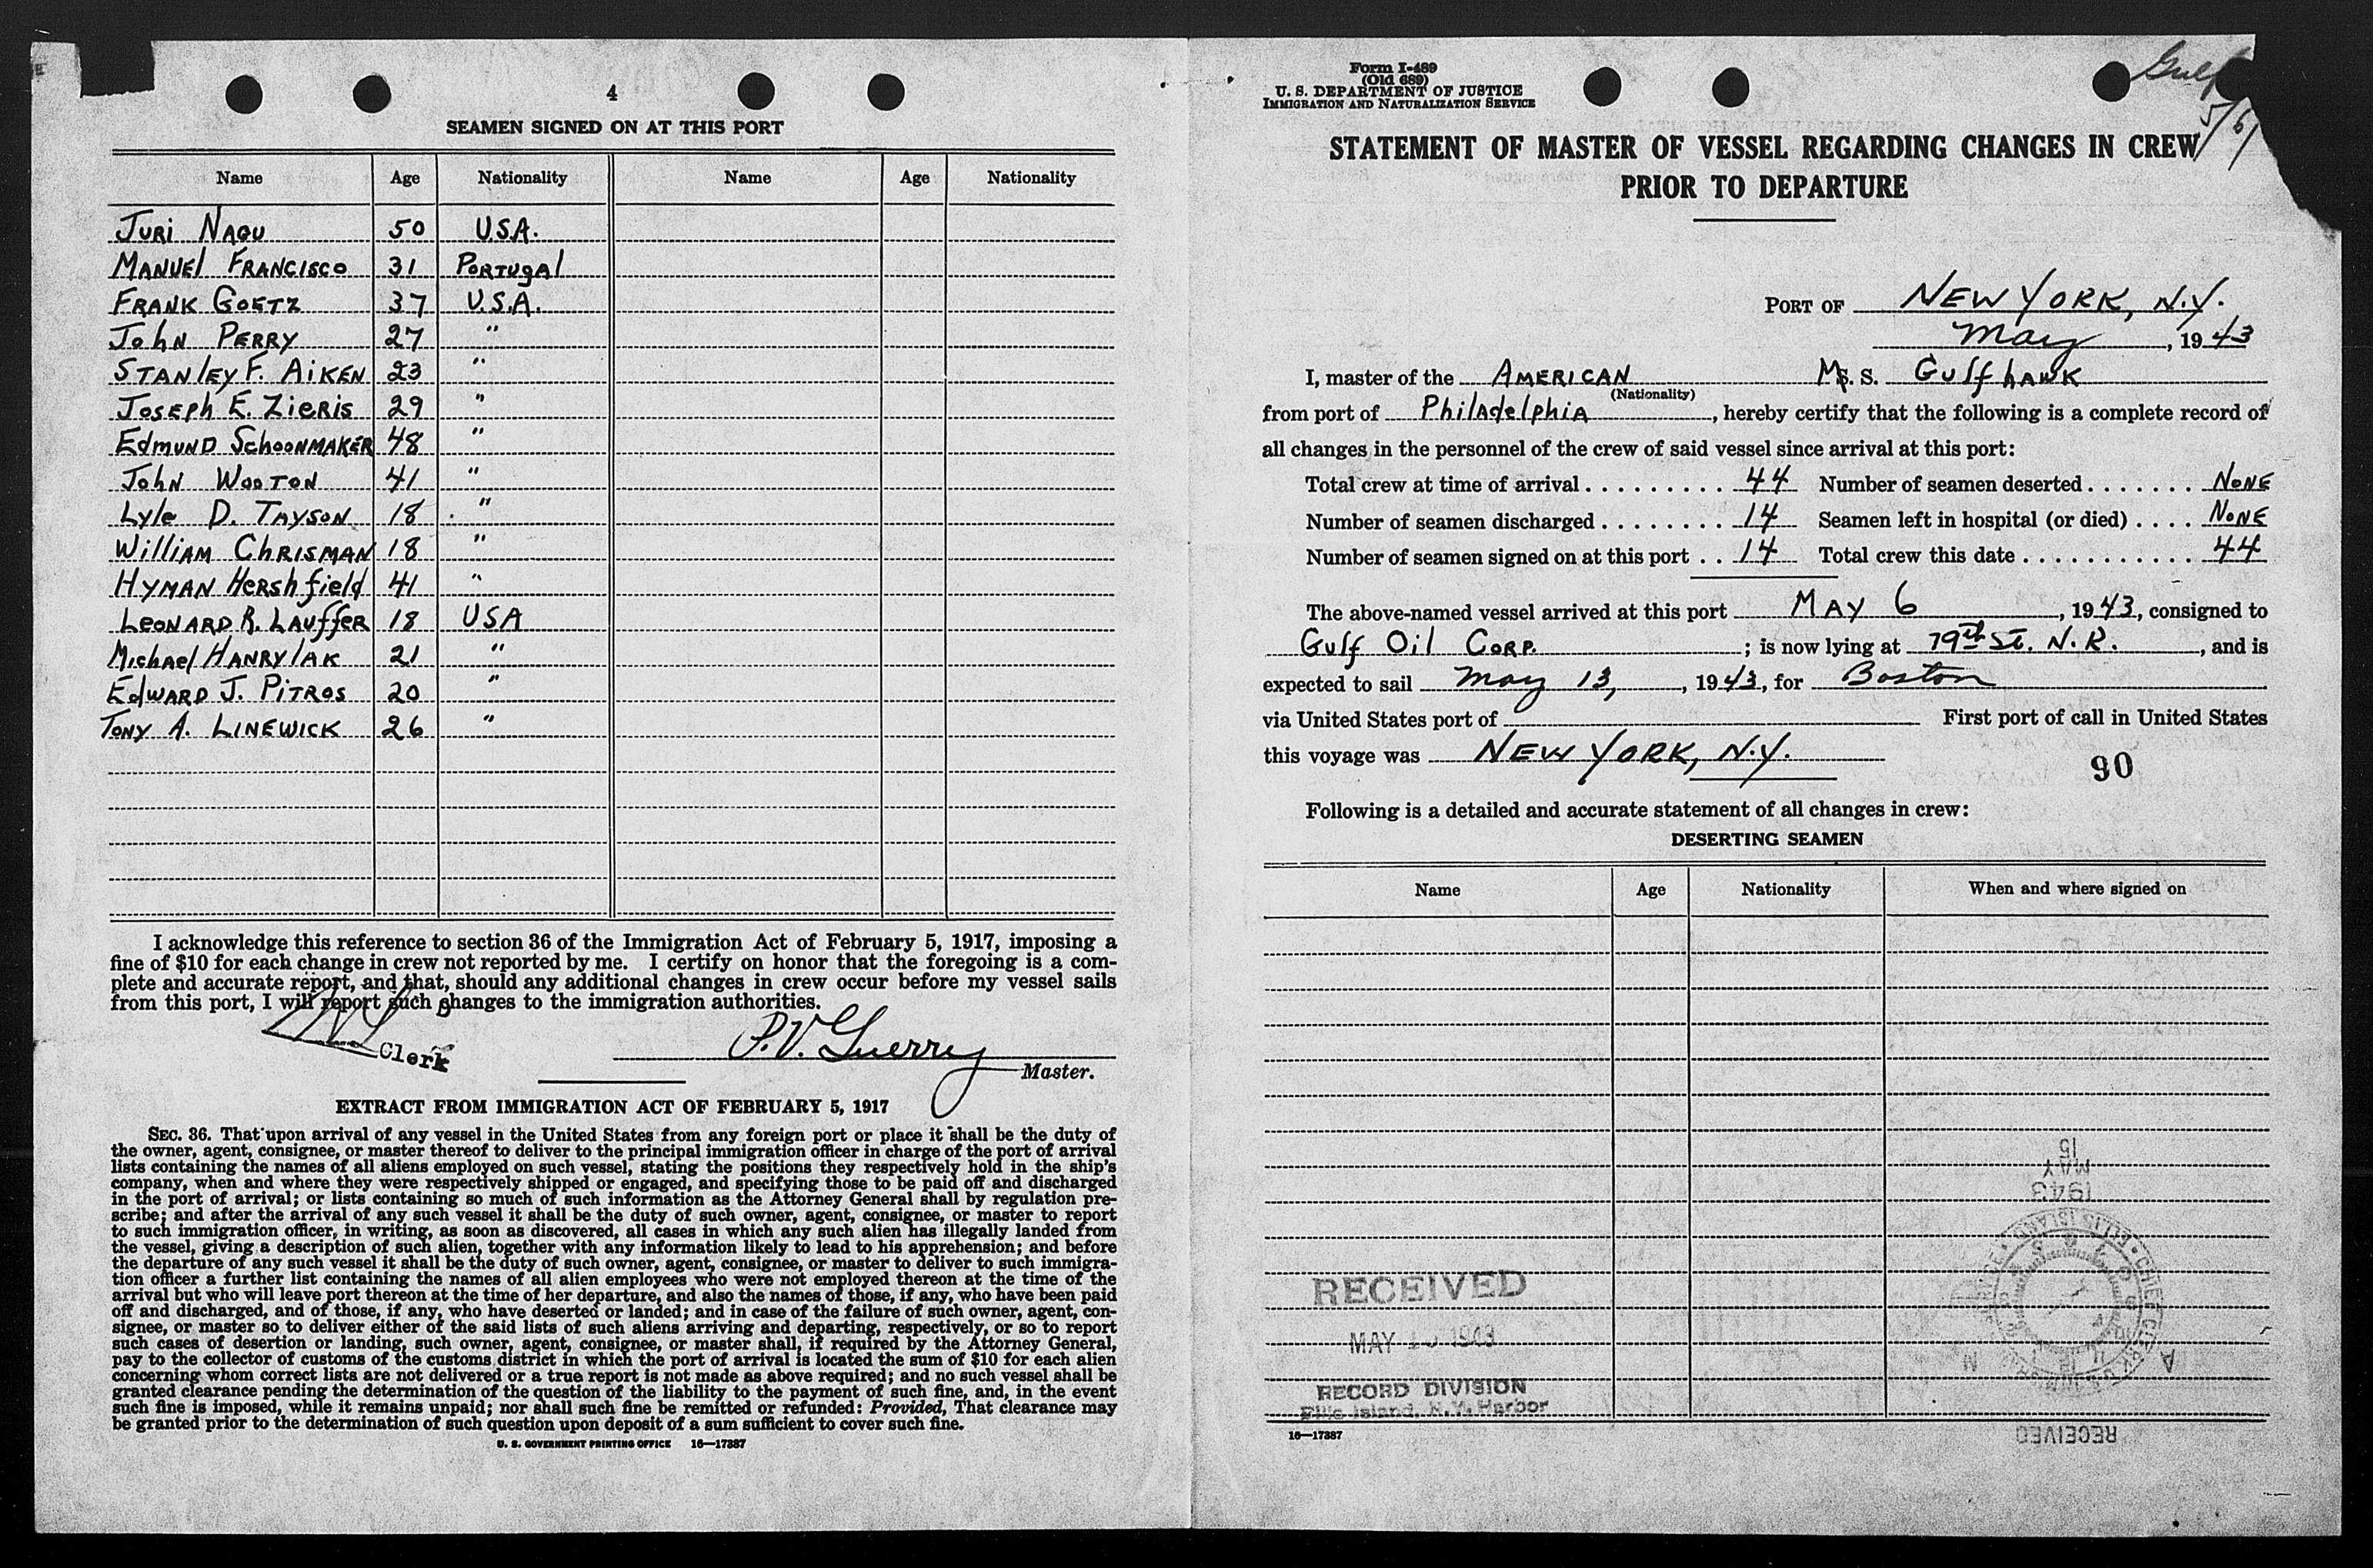 4
SEAMEN SIGNED ON AT THIS PORT
Name Age Nationality Name Age Nationality
JURI NAGU 50 U.S.A.
MANUEl FRANCISCO 31 PORTUgAl
FRANK GOETZ 37 U.S.A.
JohN PERRY 27 "
STANlEY F. AiKEN 23 "
JosEph E. ZiERiS 29 "
EdMUND SchOONMAKER 48 "
JohN WOOTON 41 "
Lyle D. TAYSON 18 "
William ChRISMAN 18 "
HYMAN HERshfield 41 "
LEONARD R. LAUffER 18 USA
MichAEl HANRYlAK 21 "
EdWARD J. PiTROS 20 "
TONY A. LINEWICK 26 "
I acknowledge this reference to section 36 of the Immigration Act of February 5, 1917, imposing a
fine of $10 for each change in crew not reported by me. I certify on honor that the foregoing is a com-
plete and accurate report, and that, should any additional changes in crew occur before my vessel sails
from this port, I will report such changes to the immigration authorities.
Clerk P.V. Guerry
Master.
EXTRACT FROM IMMIGRATION ACT OF FEBRUARY 5, 1917
SEC. 36. That upon arrival of any vessel in the United States from any foreign port or place it shall be the duty of
the owner, agent, consignee, or master thereof to deliver to the principal immigration officer in charge of the port of arrival
lists containing the names of all aliens employed on such vessel, stating the positions they respectively hold in the ship's
company, when and where they were respectively shipped or engaged, and specifying those to be paid off and discharged
in the port of arrival; or lists containing so much of such information as the Attorney General shall by regulation pre-
scribe; and after the arrival of any such vessel it shall be the duty of such owner, agent, consignee, or master to report
to such immigration officer, in writing, as soon as discovered, all cases in which any such alien has illegally landed from
the vessel, giving a description of such alien, together with any information likely to lead to his apprehension; and before
the departure of any such vessel it shall be the duty of such owner, agent, consignee, or master to deliver to such immigra-
tion officer a further list containing the names of all alien employees who were not employed thereon at the time of the
arrival but who will leave port thereon at the time of her departure, and also the names of those, if any, who have been paid
off and discharged, and of those, if any, who have deserted or landed; and in case of the failure of such owner, agent, con-
signee, or master so to deliver either of the said lists of such aliens arriving and departing, respectively, or so to report
such cases of desertion or landing, such owner, agent, consignee, or master shall, if required by the Attorney General,
pay to the collector of customs of the customs district in which the port of arrival is located the sum of $10 for each alien
concerning whom correct lists are not delivered or a true report is not made as above required; and no such vessel shall be
granted clearance pending the determination of the question of the liability to the payment of such fine, and, in the event
such fine is imposed, while it remains unpaid; nor shall such fine be remitted or refunded: Provided, That clearance may
be granted prior to the determination of such question upon deposit of a sum sufficient to cover such fine.
U. S. GOVERNMENT PRINTING OFFICE 16—17387
Form I-489
(Old 689)
U. S. DEPARTMENT OF JUSTICE
IMMIGRATION AND NATURALIZATION SERVICE
Gulf
5/6/
STATEMENT OF MASTER OF VESSEL REGARDING CHANGES IN CREW
PRIOR TO DEPARTURE
PORT OF NEW YORK, N.Y.
May, 1943
I, master of the AMERICAN M. S. Gulfhawk
(Nationality)
from port of PhilAdelphiA, hereby certify that the following is a complete record of
all changes in the personnel of the crew of said vessel since arrival at this port:
Total crew at time of arrival . . . . . . . . . 44 Number of seamen deserted . . . . . . . NONE
Number of seamen discharged . . . . . . . . 14 Seamen left in hospital (or died) . . . . NONE
Number of seamen signed on at this port . . 14 Total crew this date . . . . . . . . . . . 44
The above-named vessel arrived at this port MAY 6, 1943, consigned to
Gulf Oil CORP. ; is now lying at 79th St. N. R., and is
expected to sail May 13, , 1943, for Boston
via United States port of First port of call in United States
this voyage was NEW YORK, N.Y.
90
Following is a detailed and accurate statement of all changes in crew:
DESERTING SEAMEN
Name Age Nationality When and where signed on
1943
MAY
15
RECEIVED
MAY 1943
RECORD DIVISION
Ellis Island, N.Y. Harbor
16—17387
RECEIVED